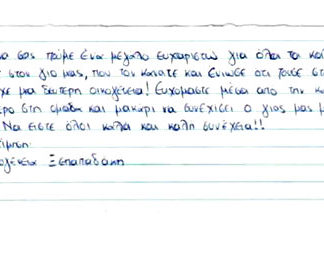 να σας πούμε ένα μεγάλο ευχαριστώ για όλα τα κα
στον γιο μας, που τον κάνατε και ένιωσε ότι τόσο στ
χε μια δεύτερη οικογένεια! Ευχόμαστε μέσα από την κ
ερο στη ομάδα και μακάρι να συνεχίσει ο γιος μας μ
Να είστε όλοι καλά και καλή συνέχεια!!
ίμηση
ογένεια Ξεπαπαδάκη